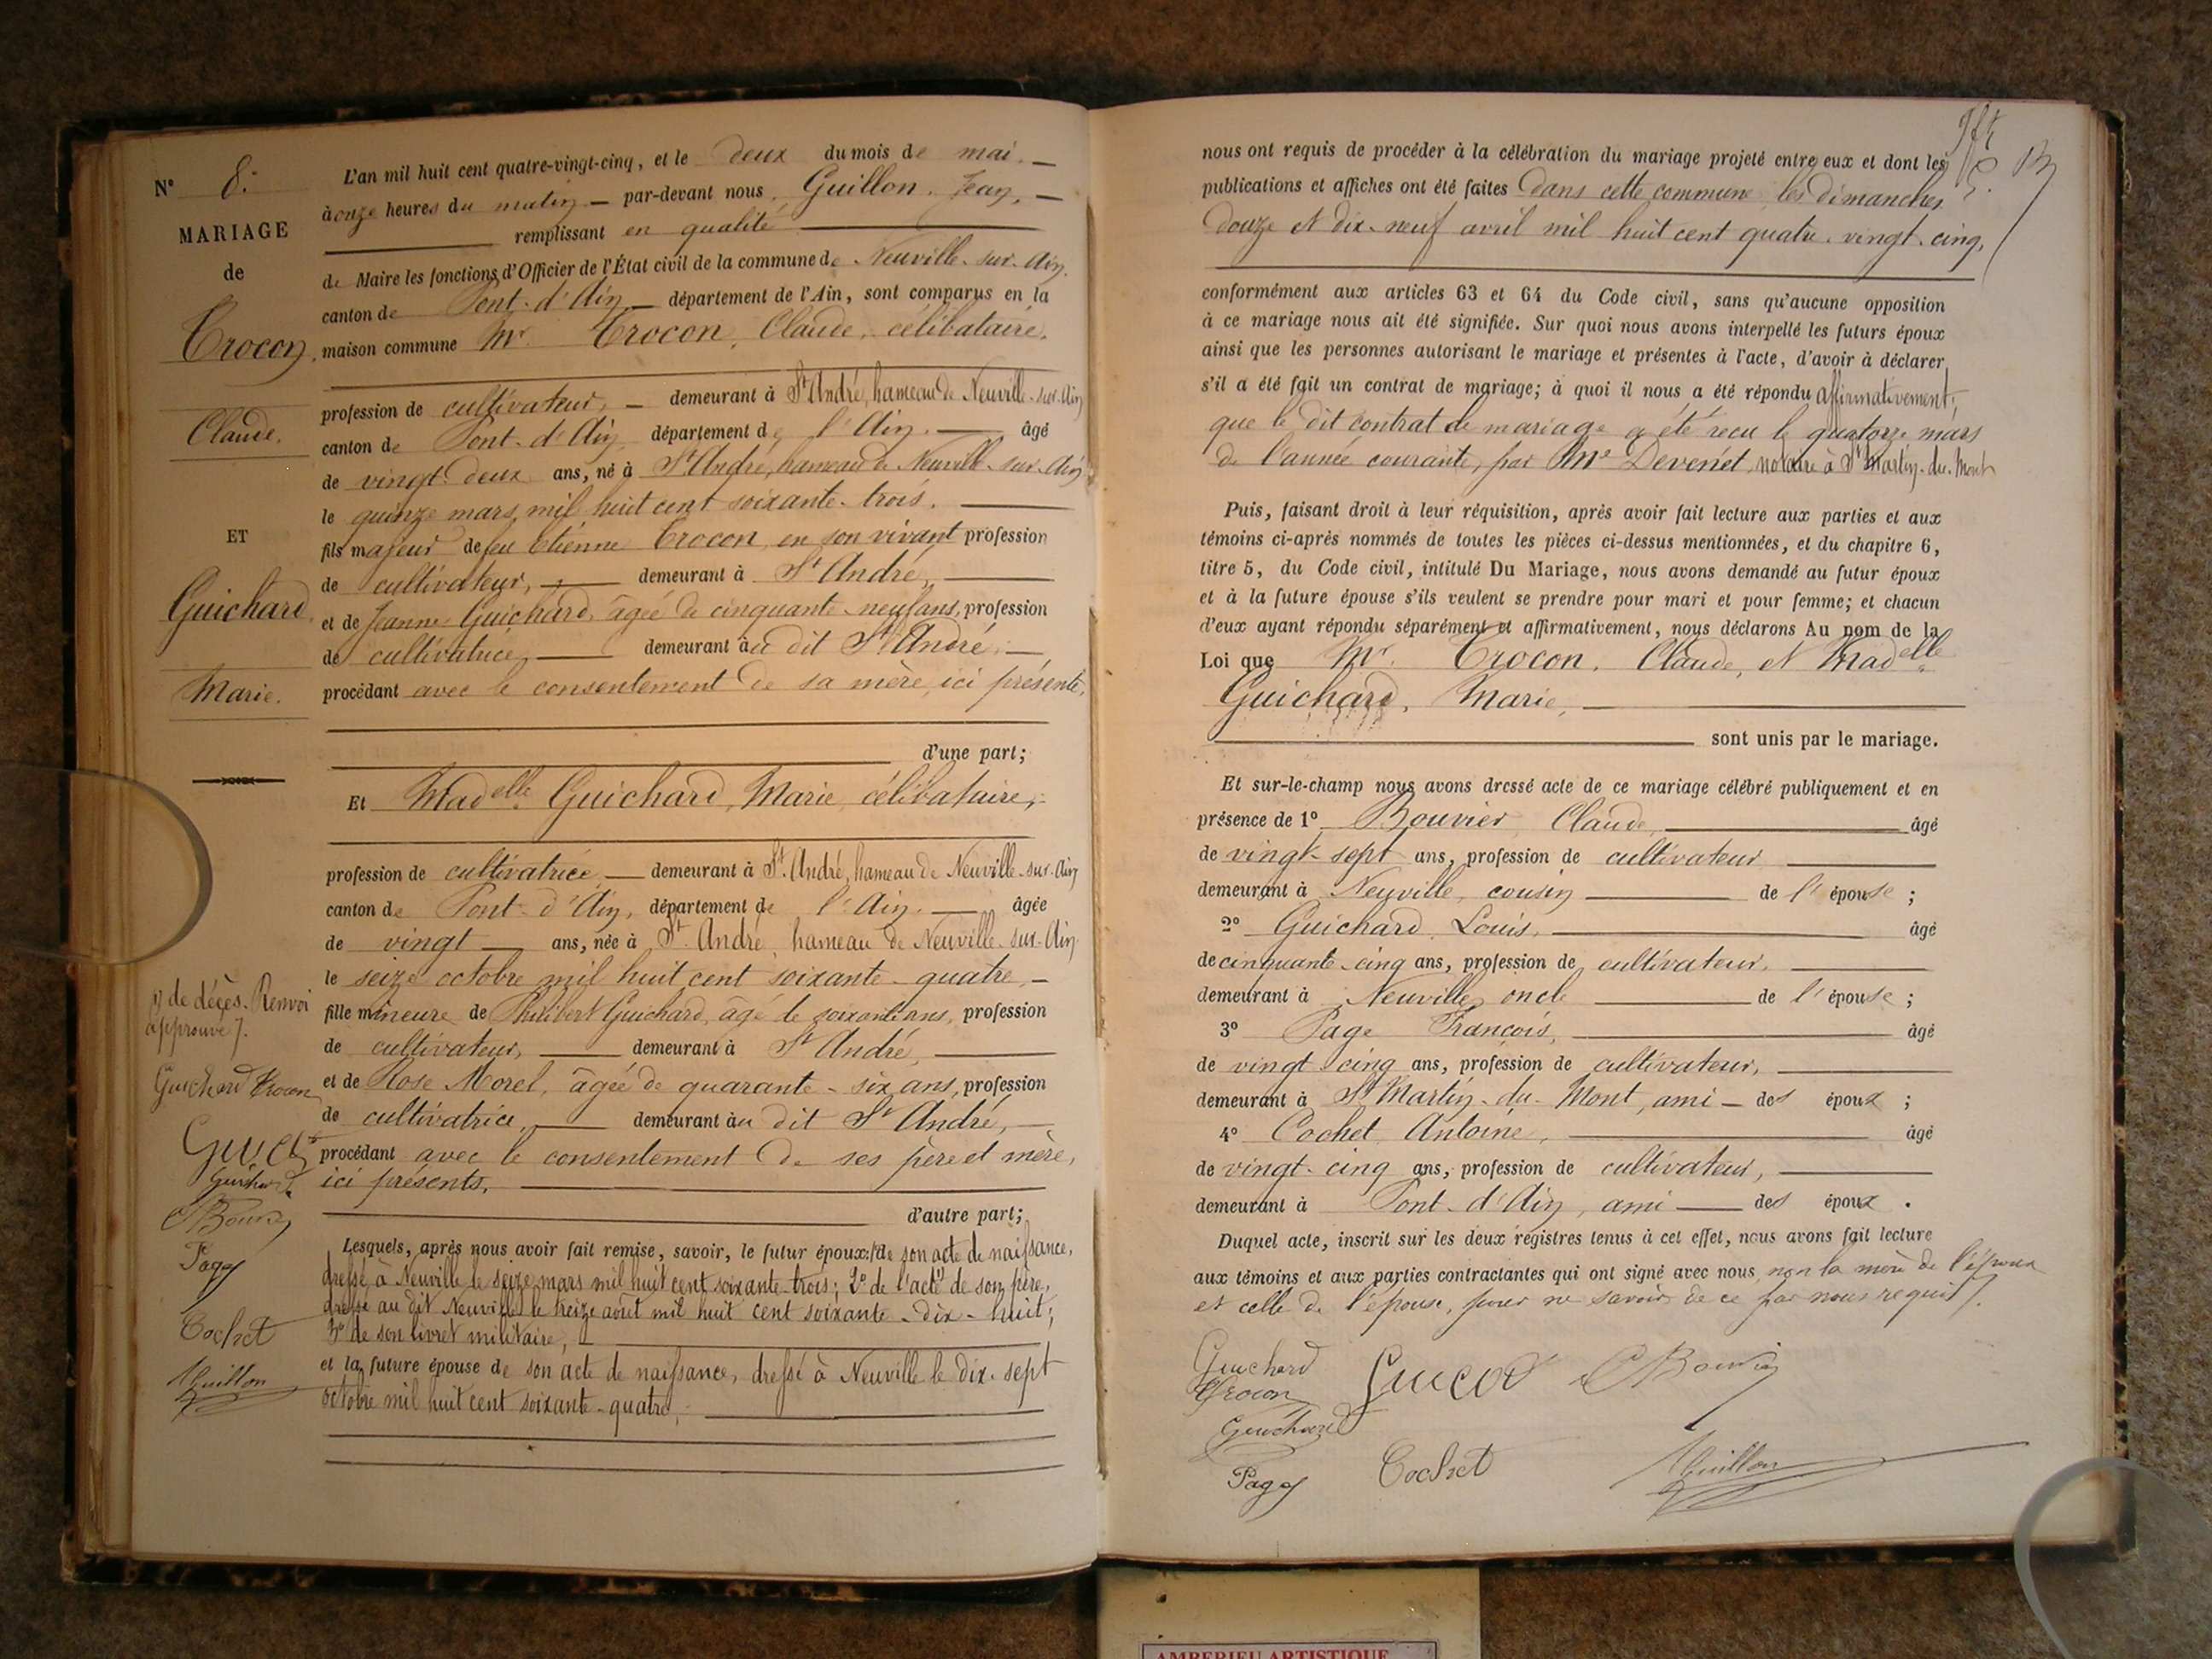 N° 8.
MARIAGE
de
Trocon,
Claude.
ET
Guichard,
Marie.
L'an mil huit cent quatre-vingt-cinq, et le deux du mois de mai.
à onze heures du matin par-devant nous, Guillon, Jean,
remplissant en qualité
de Maire les fonctions d'Officier de l'État civil de la commune de Neuville-sur-Ain,
canton de Pont-d'Ain département de l'Ain, sont comparus en la
maison commune Mr. Trocon, Claude, célibataire,
profession de cultivateur, demeurant à St André, hameau de Neuville-sur-Ain
canton de Pont-d'Ain département de l'Ain. âgé
de vingt-deux ans, né à St André, hameau de Neuville-sur-Ain
le quinze mars mil huit cent soixante-trois.
fils majeur de feu Etienne Trocon, en son vivant profession
de cultivateur, demeurant à St André,
et de Jeanne Guichard, âgée de cinquante-neuf ans, profession
de cultivatrice, demeurant au dit St André,
procédant avec le consentement de sa mère, ici présente,
d'une part;
Et Madelle Guichard, Marie, célibataire,
profession de cultivatrice, demeurant à St. André, hameau de Neuville-sur-Ain
canton de Pont-d'Ain, département de l'Ain. âgée
de vingt ans, née à St. André, hameau de Neuville-sur-Ain
le seize octobre mil huit cent soixante-quatre,
fille mineure de Philibert Guichard, âgé de soixante ans, profession
de cultivateur, demeurant à St André,
et de Rose Morel, âgée de quarante-six ans, profession
de cultivatrice, demeurant au dit St André,
procédant avec le consentement de ses père et mère,
ici présents,
d'autre part;
Lesquels, après nous avoir fait remise, savoir, le futur époux: 1° de son acte de naissance,
dressé à Neuville le seize mars mil huit cent soixante-trois; 2° de l'acte (1) de son père,
dressé au dit Neuville le treize août mil huit cent soixante-dix-huit;
3° de son livret militaire,
et la future épouse de son acte de naissance, dressé à Neuville le dix-sept
octobre mil huit cent soixante-quatre,
1) de décès. Renvoi
approuvé).
Guichard Trocon
Guichard
C Bouvier
Page
Cochet
JGuillon
nous ont requis de procéder à la célébration du mariage projeté entre eux et dont les
publications et affiches ont été faites dans cette commune les dimanches
douze et dix-neuf avril mil huit cent quatre-vingt-cinq,
conformément aux articles 63 et 64 du Code civil, sans qu'aucune opposition
à ce mariage nous ait été signifiée. Sur quoi nous avons interpellé les futurs époux
ainsi que les personnes autorisant le mariage et présentes à l'acte, d'avoir à déclarer
s'il a été fait un contrat de mariage; à quoi il nous a été répondu affirmativement,
que le dit contrat de mariage a été reçu le quatorze mars
de l'année courante, par Me Devenet, notaire à St Martin-du-Mont
Puis, faisant droit à leur réquisition, après avoir fait lecture aux parties et aux
témoins ci-après nommés de toutes les pièces ci-dessus mentionnées, et du chapitre 6,
titre 5, du Code civil, intitulé Du Mariage, nous avons demandé au futur époux
et à la future épouse s'ils veulent se prendre pour mari et pour femme; et chacun
d'eux ayant répondu séparément et affirmativement, nous déclarons Au nom de la
Loi que Mr. Trocon, Claude, et Madelle
Guichard, Marie,
sont unis par le mariage.
Et sur-le-champ nous avons dressé acte de ce mariage célébré publiquement et en
présence de 1° Bouvier Claude, âgé
de vingt-sept ans, profession de cultivateur
demeurant à Neuville, cousin de l'épouse;
2° Guichard, Louis, âgé
de cinquante-cinq ans, profession de cultivateur,
demeurant à Neuville, oncle de l'épouse;
3° Page François, âgé
de vingt cinq ans, profession de cultivateur,
demeurant à St Martin-du-Mont, ami des époux;
4° Cochet, Antoine, âgé
de vingt-cinq ans, profession de cultivateur,
demeurant à Pont-d'Ain, ami des époux.
Duquel acte, inscrit sur les deux registres tenus à cet effet, nous avons fait lecture
aux témoins et aux parties contractantes qui ont signé avec nous, non la mère de l'époux
et celle de l'épouse, pour ne savoir de ce par nous requis).
Guichard
Trocon
C Bouvier
Guichard
Page
Cochet
JGuillon
AMBERIEU ARTISTIQUE